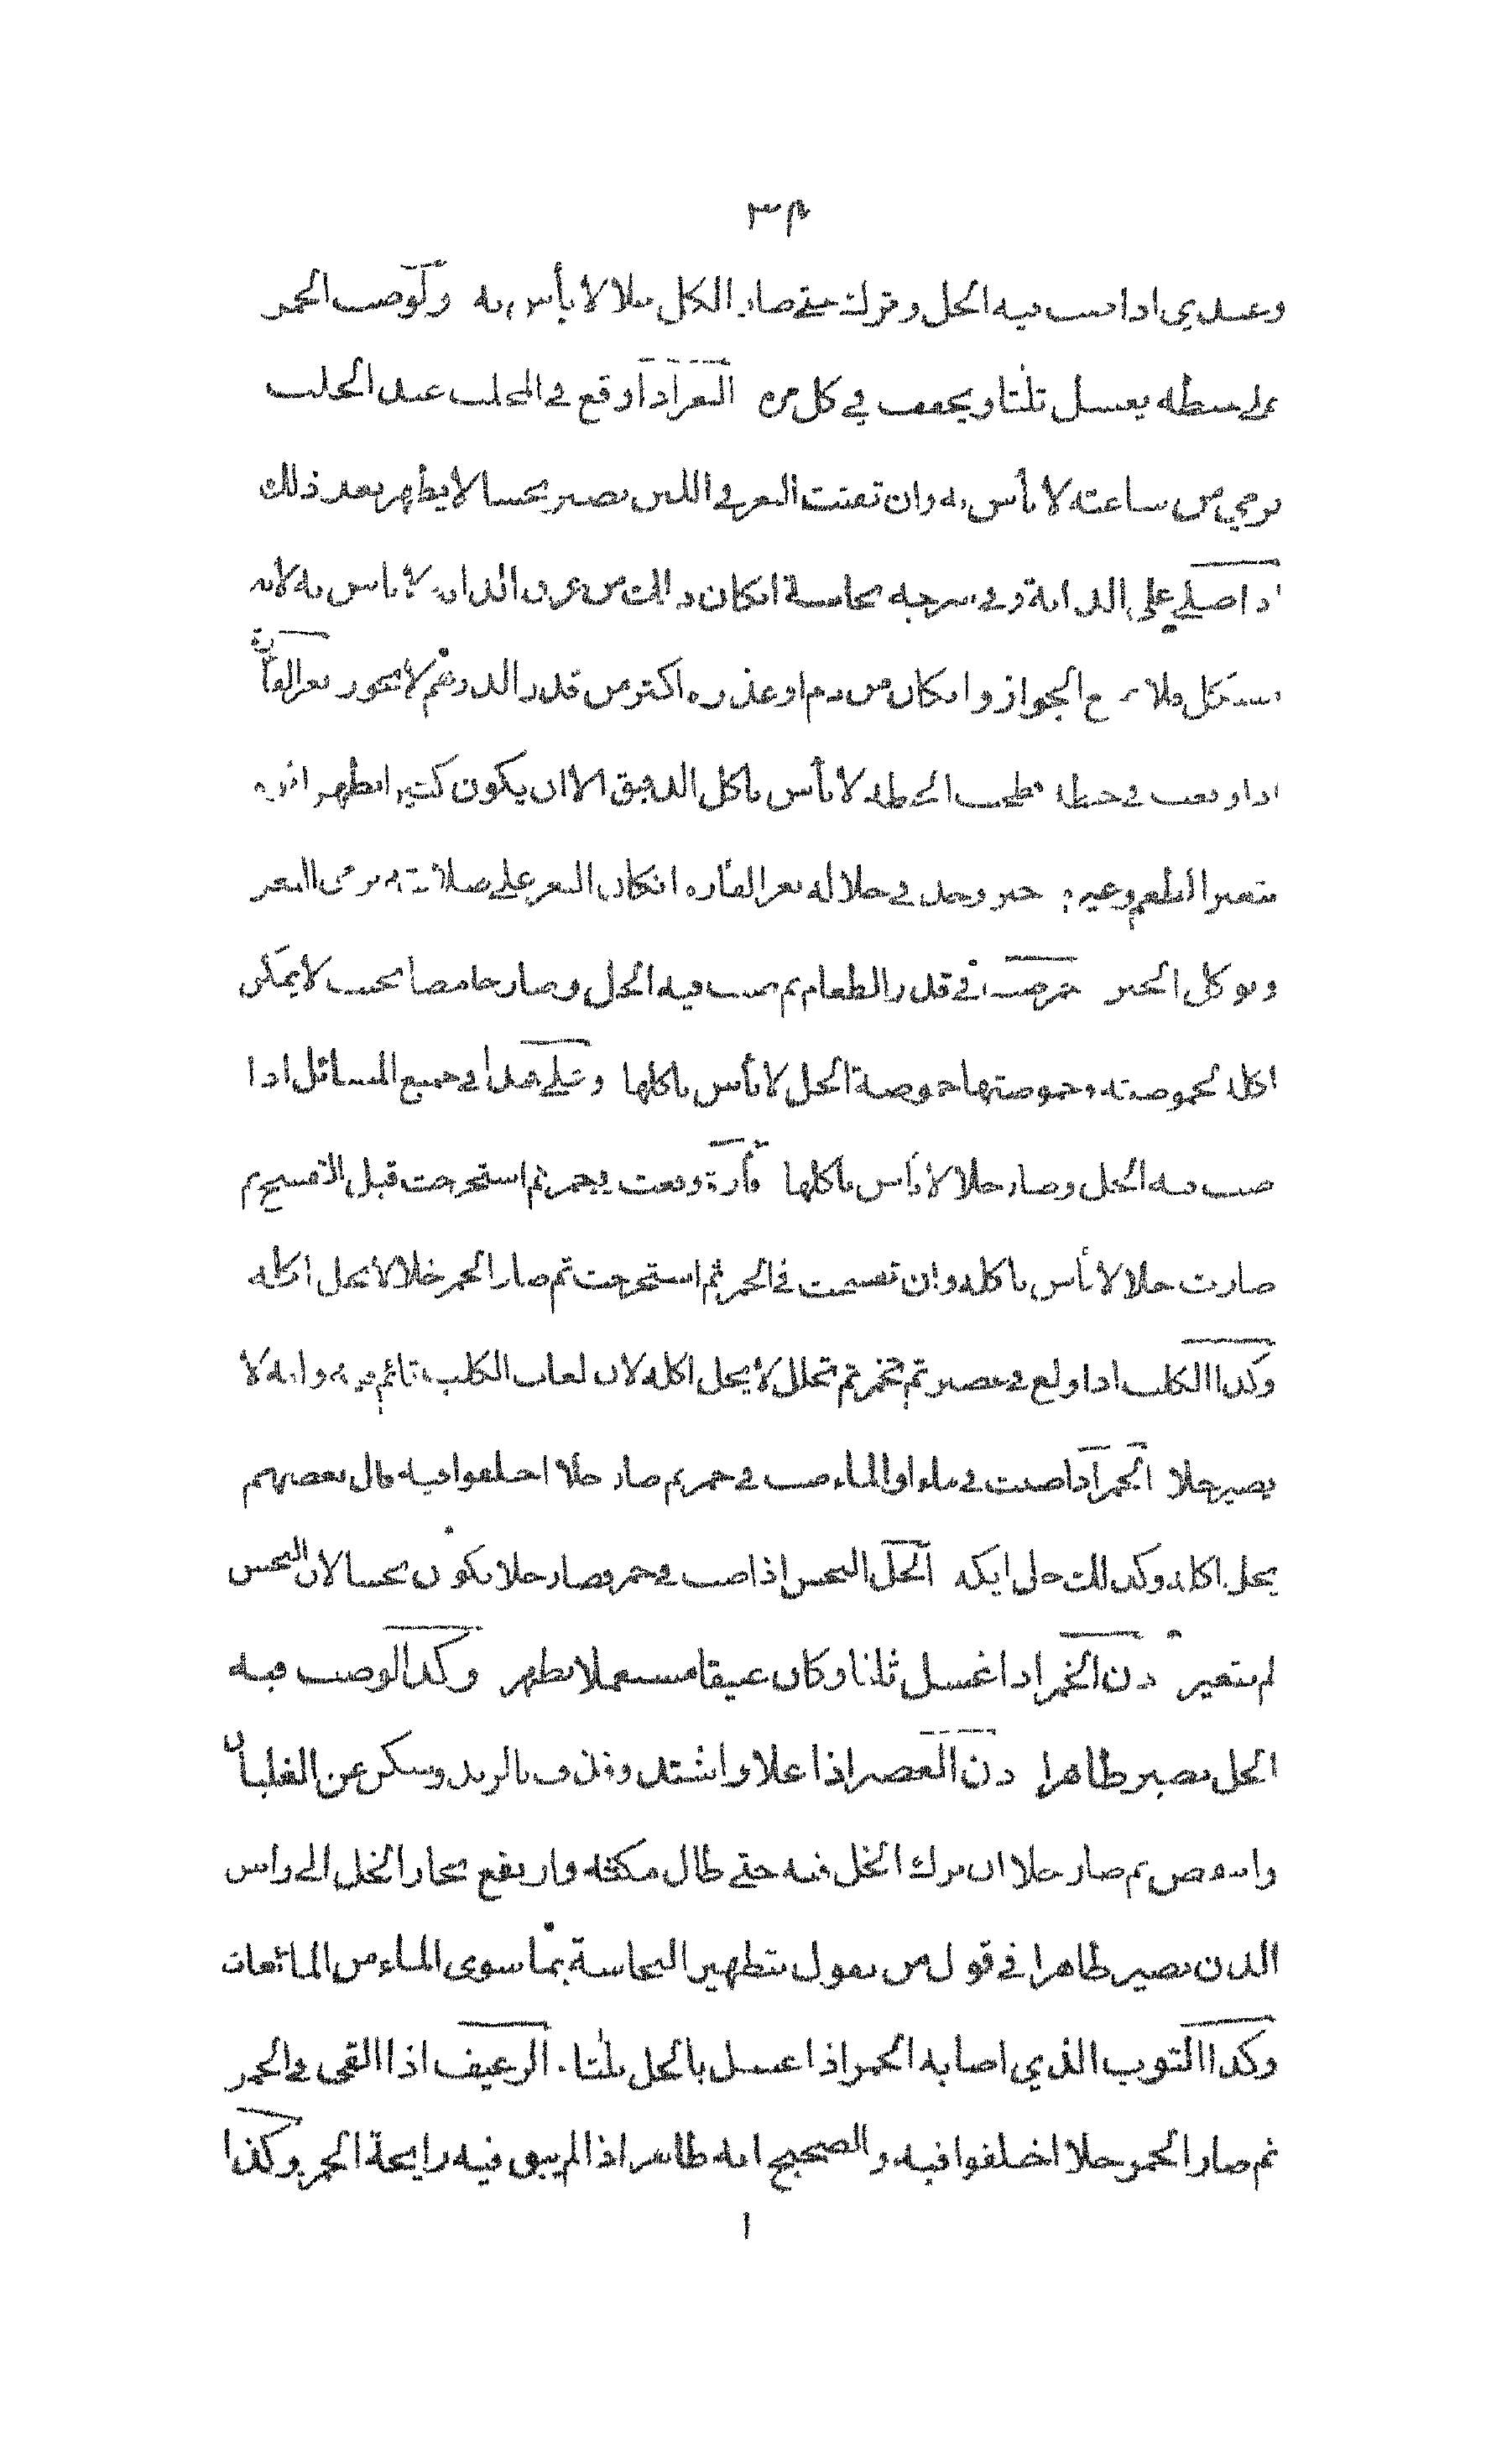 ٣٣
وعندي اذا صب فيه الخل وترك حتى صار الكل خلا لا بأس به ولوصب الخمر
على حنطة يغسل ثلثا ويجفف في كل مرة البعر اذا وقع في المحلب عند الحلب
فرمي من ساعته لا بأس به وان تفتت البعر في اللبن يصير نجسا لا يطهر بعد ذلك
اذا صلى على الدابة وفي سرجه نجاسة انكان ذلك من عرق الدابة لا باس به لانه
الجواز وانكان من دم او عذره اكثر من قدر الدرهم لا يجوز بعر الفأرة
اذا وقعت في حنطة فطحنت الحنطة لا بأس باكل الدقيق الا ان يكون كثيرا يظهر اثره
بتغير الطعم وغيره خبز وجد في خلاله بعر الفأره انكان البعر على صلابته يرمى البعر
ويوكل الخبز خمر صب في قدر الطعام ثم صب فيه الخل وصار حامضا بحيث لا يمكن
اكله لحموضته وحموضتها حموضة الخل لا بأس باكلها وعلى هذا في جميع المسائل اذا
صب فيه الخل وصار خلا لا بأس باكلها فأرة وقعت في خمر ثم استخرجت قبل التفسخ ثم
صارت خلا لا بأس باكله وان تفسخت في الخمر ثم استخرجت ثم صار الخمر خلا لا يحل اكله
وكذا الكلب اذا ولغ في عصير ثم تخمر ثم تخلل لا يحل اكله لان لعاب الكلب قائم فيه وانه لا
يصير خلا الخمر اذا صبت في ماء او الماء صب في خمر ثم صار خلا اختلفوا فيه قال بعضهم
يحل اكله وكذلك الخل النجس اذا صب في خمر فصار خلا يكون نجسا لان النجس
لم يتغير دن الخمر اذا غسل ثلثا وكان عتيقا مستعملا يطهر وكذا لو صب فيه
الخل يصير طاهرا دن العصير اذا غلا واشتد وقذف بالزبد وسكن عن الغليان
وانتقص ثم صار خلا ان ترك الخل فيه حتى طال مكثه وارتفع بخار الخل الى راس
الدن يصير طاهرا في قول من يقول بتطهير النجاسة بما سوى الماء من المائعات
وكذا الثوب الذي اصابه الخمر اذا غسل بالخل ثلثا. الرغيف اذا القى في الخمر
ثم صار الخمر خلا اختلفوا فيه والصحيح انه طاهر اذا لم يبق فيه رايحة الخمر وكذا
ا